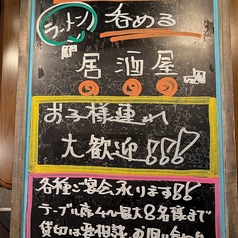 ラーメン
呑める
居酒屋
お子様連れ
大歓迎!!!
各種ご宴会承ります!!
テーブル席なら最大8名様まで
貸切は要相談